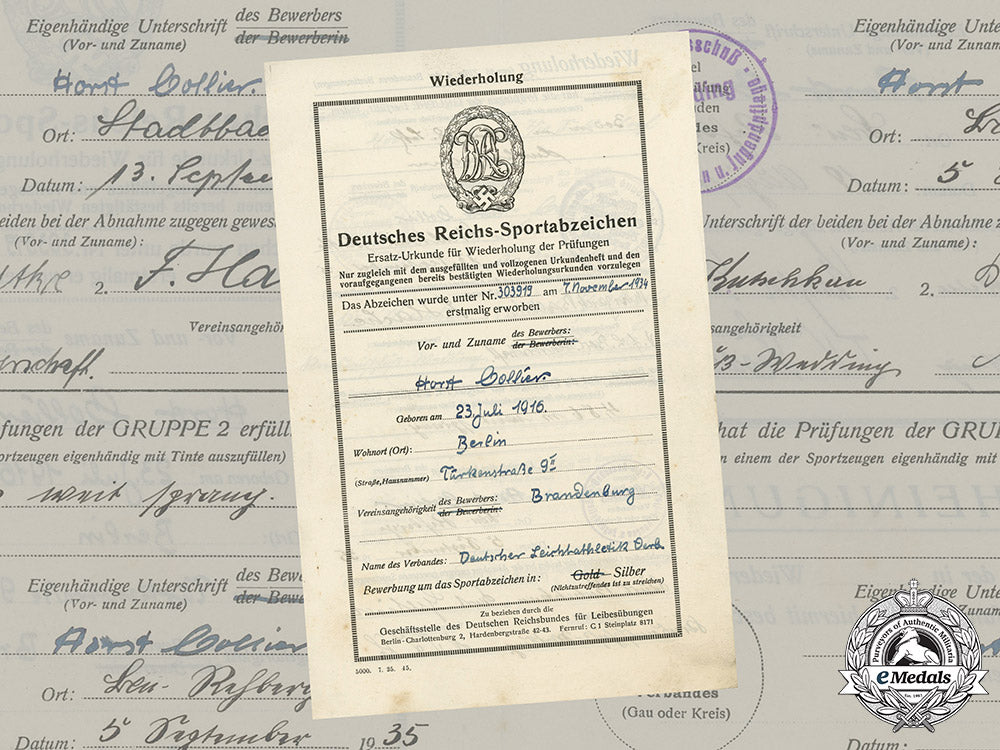 Wiederholung
DRL
Deutsches Reichs-Sportabzeichen
Ersatz-Urkunde für Wiederholung der Prüfungen
Nur zugleich mit dem ausgefüllten und vollzogenen Urkundenheft und den
voraufgegangenen bereits bestätigten Wiederholungsurkunden vorzulegen
Das Abzeichen wurde unter Nr. 303919 am 7. November 1934
erstmalig erworben
Vor- und Zuname des Bewerbers:
der Bewerberin:
Horst Collier.
Geboren am 23. Juli 1916.
Wohnort (Ort): Berlin
(Straße, Hausnummer) Türkenstraße 9I
Vereinsangehörigkeit des Bewerbers: Brandenburg
der Bewerberin:
Name des Verbandes: Deutscher Leichtathletik Verb.
Bewerbung um das Sportabzeichen in: Gold Silber
(Nichtzutreffendes ist zu streichen)
Zu beziehen durch die
Geschäftsstelle des Deutschen Reichsbundes für Leibesübungen
Berlin-Charlottenburg 2, Hardenbergstraße 42-43. Fernruf: C 1 Steinplatz 8171
5000. 7. 35. 45.
Eigenhändige Unterschrift des Bewerbers
(Vor- und Zuname) der Bewerberin
Horst Collier.
Ort: Stadtba
Datum: 13. Septe
eiden bei der Abnahme zugegen gewes
(Vor- und Zuname):
2. F. Ha
Vereinsangehöri
fungen der GRUPPE 2 erfüll
portzeugen eigenhändig mit Tinte auszufüllen)
weit sprang.
Eigenhändige Unterschrift des Bew
(Vor- und Zuname) der Bewe
Horst Collier
Ort: Leu-Rehberg
Datum: 5 September 1935
Eigenhändi
(Vor- und Zuname)
Horst
Ort:
Datum: 5
Kreis)
Unterschrift der beiden bei der Abnahme z
(Vor- und Zuname):
Kutschkau 2. D
igkeit
-Wedding
hat die Prüfungen der GRU
n einem der Sportzeugen eigenhändig mit
Verbandes
(Gau oder Kreis)
Eigenhä
Ort:
Datum:
Purveyors of Authentic Militaria
eMedals
Est. 1967